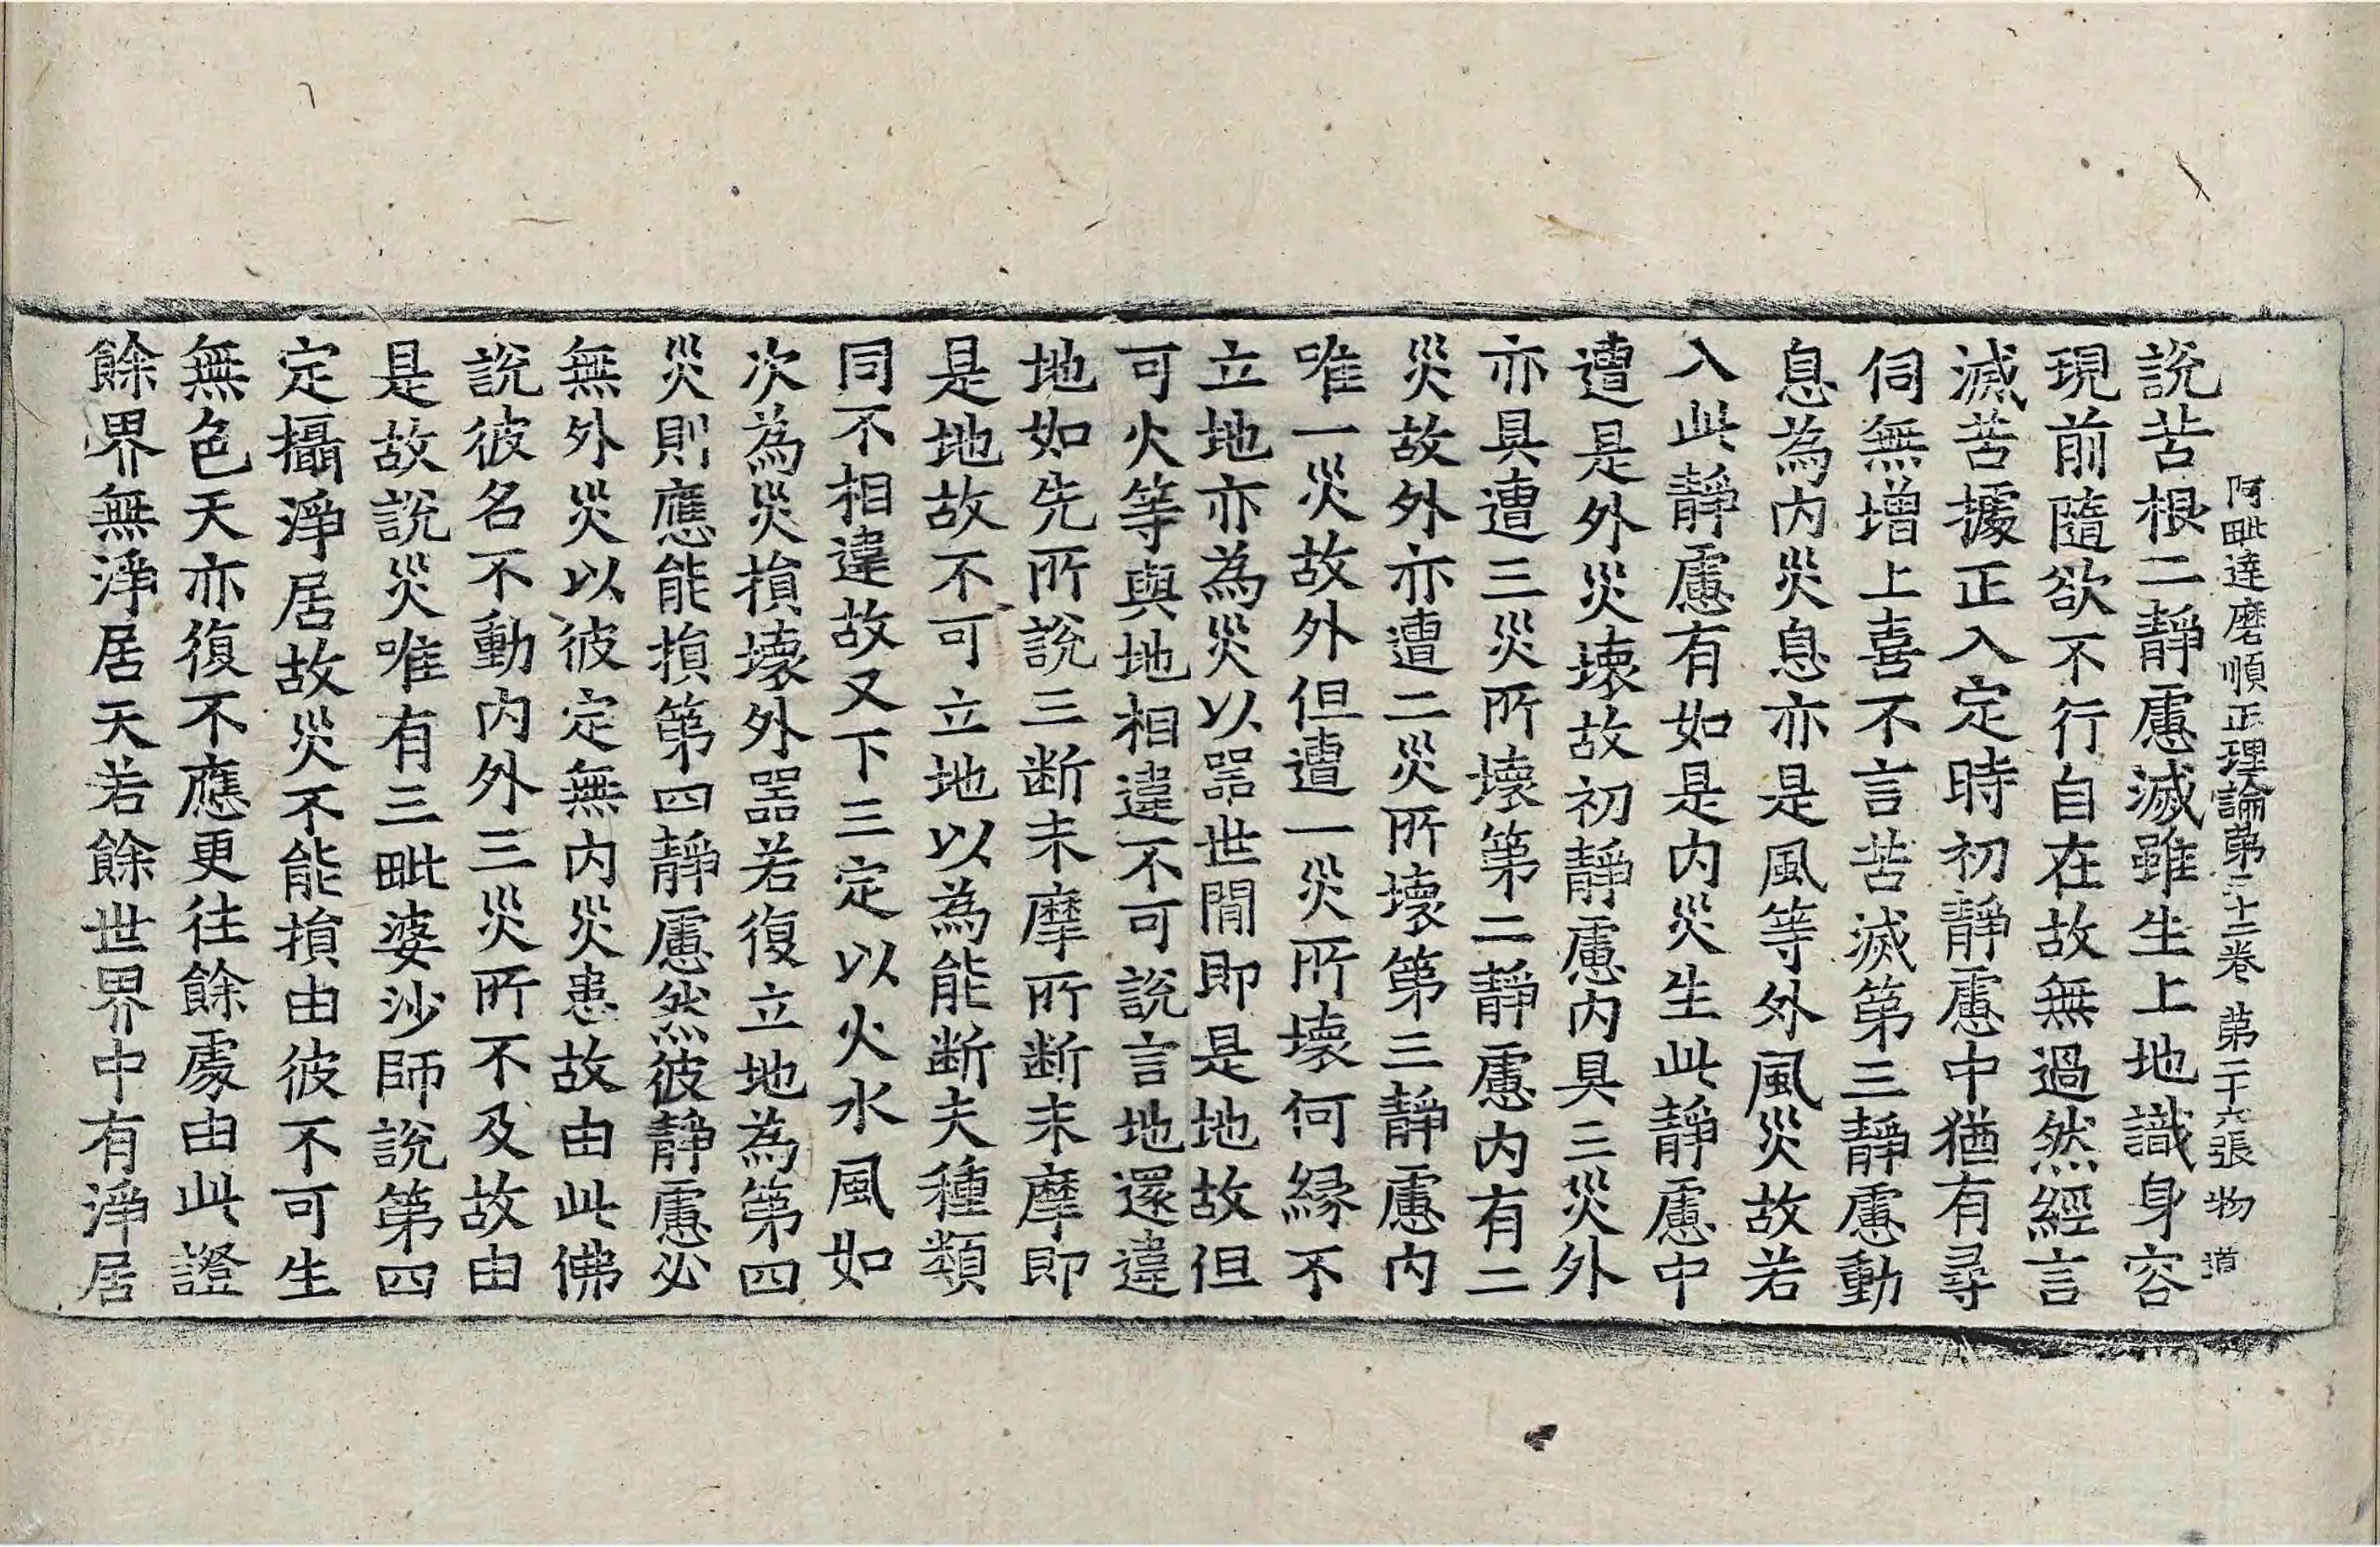 阿毗達磨順正理論第三十二卷 第二十六張 物 道
說苦根二靜慮滅雖生上地識身容
現前隨欲不行自在故無過然經言
滅苦據正入定時初靜慮中猶有尋
伺無增上喜不言苦滅第三靜慮動
息為內災息亦是風等外風災故若
入此靜慮有如是內災生此靜慮中
遭是外災壞故初靜慮內具三災外
亦具遭三災所壞第二靜慮內有二
災故外亦遭二災所壞第三靜慮內
唯一災故外但遭一災所壞何緣不
立地亦為災以器世間即是地故但
可火等與地相違不可說言地還違
地如先所說三斷末摩所斷末摩即
是地故不可立地以為能斷夫種類
同不相違故又下三定以火水風如
次為災損壞外器若復立地為第四
災則應能損第四靜慮然彼靜慮必
無外災以彼定無內災患故由此佛
說彼名不動內外三災所不及故由
是故說災唯有三毗婆沙師說第四
定攝淨居故災不能損由彼不可生
無色天亦復不應更往餘處由此證
餘界無淨居天若餘世界中有淨居